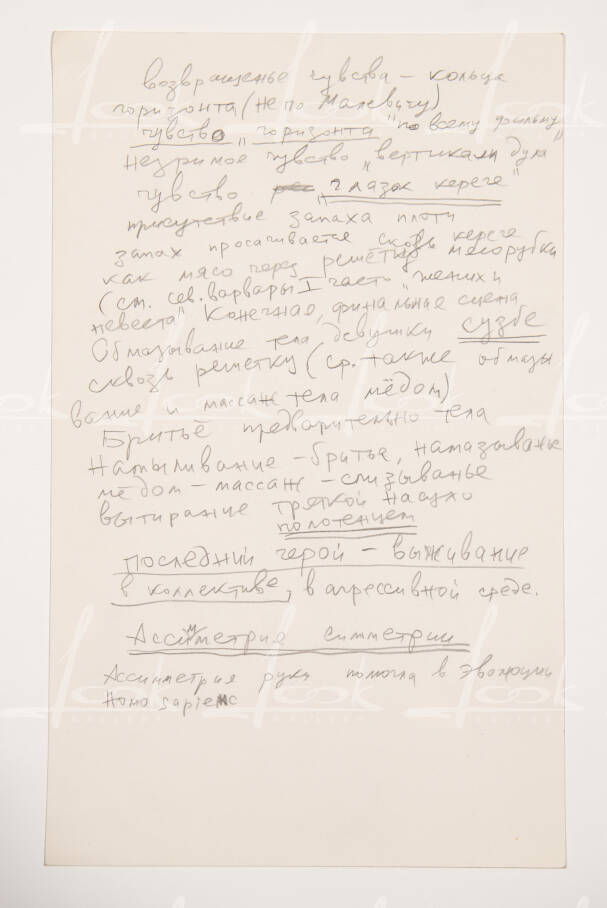 возвращенье чувства – кольца
горизонта (не по Малевичу)
чувство „горизонта "по всему фильму"
незримое чувство „вертикали духа
чувство „глазок кереге"
присутствие запаха плоти
запах просачивается сквозь кереге
как мясо через решетку мясорубки
(см. сев. варвары I часть „жених и
невеста" Конечная, финальная сцена
Обмазывание тела девушки сузбе
сквозь решетку (ср. также обмазы
вание и массаж тела мёдом)
Бритьё предварительно тела
Намыливание – бритье, намазыванье
мёдом – массаж – слизыванье
вытирание тряпкой насухо
полотенцем
последний герой – выживание
в коллективе, в агрессивной среде.
Ассиметрия симметрии
Ассиметрия руки помогла в эволюции
Homo sapiens
look
look
look
look